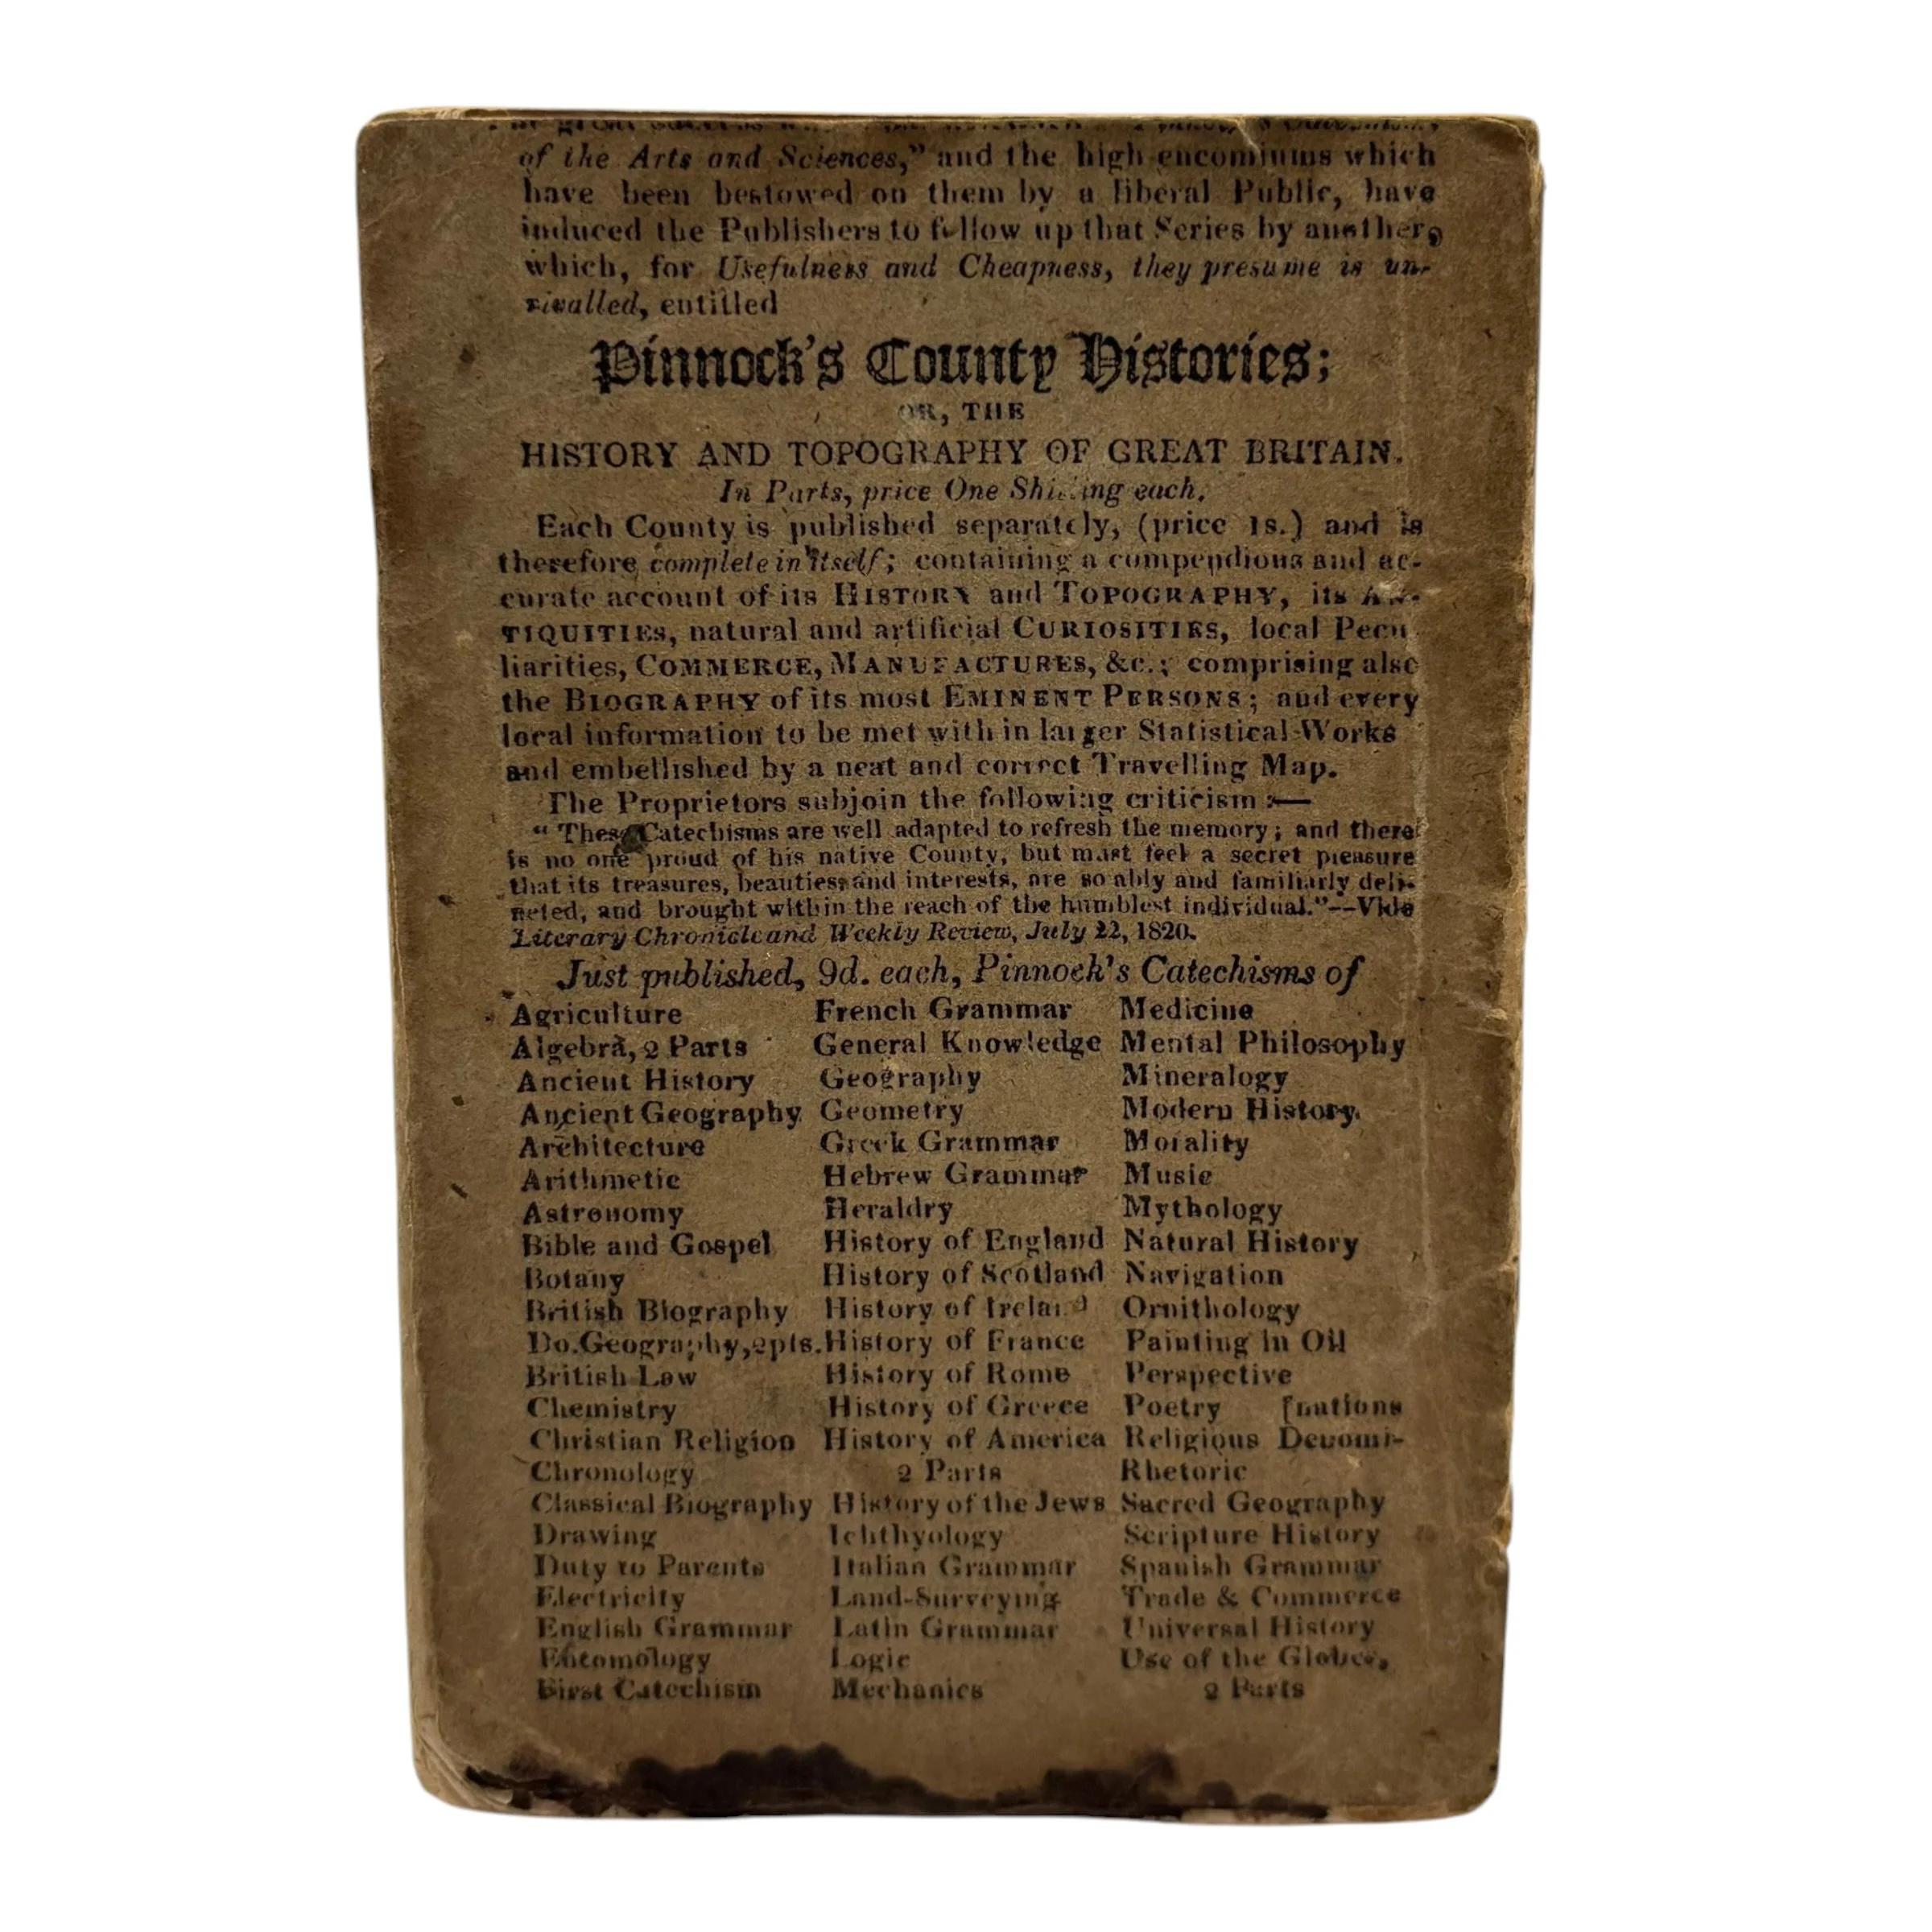 of the Arts and Sciences," and the high encomiums which
have been bestowed on them by a liberal Public, have
induced the Publishers to follow up that Series by another,
which, for Usefulness and Cheapness, they presume is un-
rivalled, entitled
Pinnock's County Histories;
OR, THE
HISTORY AND TOPOGRAPHY OF GREAT BRITAIN.
In Parts, price One Shilling each.
Each County is published separately, (price 1s.) and is
therefore complete in itself; containing a compendious and ac-
curate account of its HISTORY and TOPOGRAPHY, its AN-
TIQUITIES, natural and artificial CURIOSITIES, local Pecu
liarities, COMMERCE, MANUFACTURES, &c.; comprising also
the BIOGRAPHY of its most EMINENT PERSONS; and every
local information to be met with in larger Statistical Works
and embellished by a neat and correct Travelling Map.
The Proprietors subjoin the following criticism:—
"These Catechisms are well adapted to refresh the memory; and there
is no one proud of his native County, but must feel a secret pleasure
that its treasures, beauties, and interests, are so ably and familiarly deli-
neted, and brought within the reach of the humblest individual."--Vide
Literary Chronicle and Weekly Review, July 22, 1820.
Just published, 9d. each, Pinnock's Catechisms of
Agriculture
Algebra, 2 Parts
Ancient History
Ancient Geography
Architecture
Arithmetic
Astronomy
Bible and Gospel
Botany
British Biography
Do. Geography, 2pts.
British Law
Chemistry
Christian Religion
Chronology
Classical Biography
Drawing
Duty to Parents
Electricity
English Grammar
Entomology
First Catechism
French Grammar
General Knowledge
Geography
Geometry
Greek Grammar
Hebrew Grammar
Heraldry
History of England
History of Scotland
History of Ireland
History of France
History of Rome
History of Greece
History of America
2 Parts
History of the Jews
Ichthyology
Italian Grammar
Land-Surveying
Latin Grammar
Logic
Mechanics
Medicine
Mental Philosophy
Mineralogy
Modern History.
Morality
Music
Mythology
Natural History
Navigation
Ornithology
Painting in Oil
Perspective
Poetry [nations
Religious Denomi-
Rhetoric
Sacred Geography
Scripture History
Spanish Grammar
Trade & Commerce
Universal History
Use of the Globes,
2 Parts